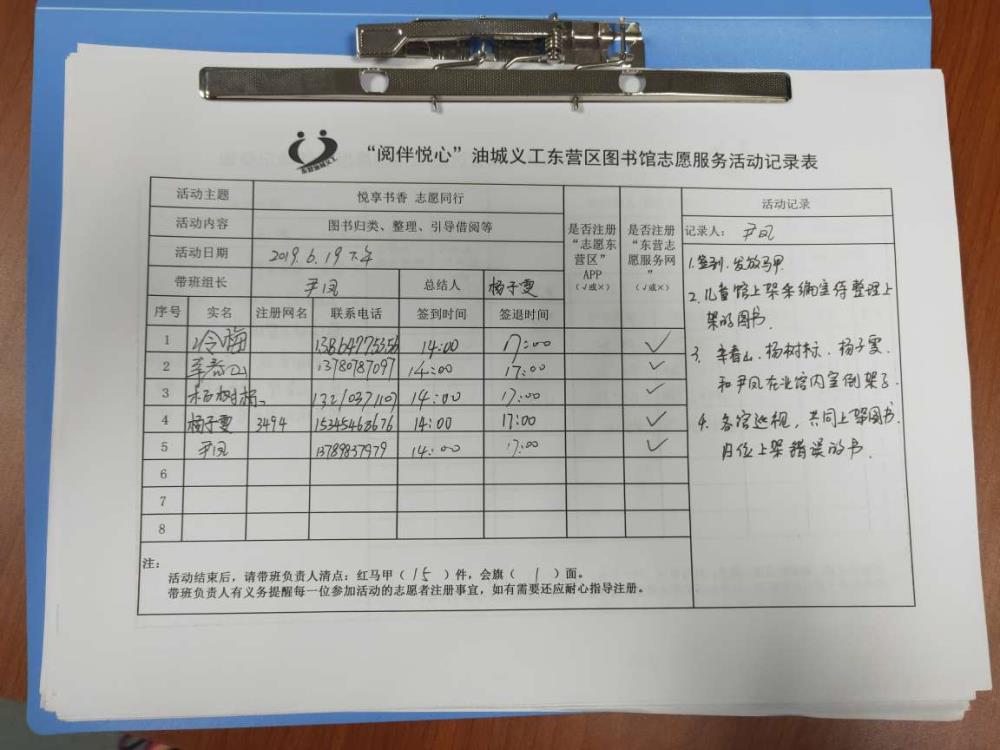 “阅伴悦心”油城义工东营区图书馆志愿服务活动记录表
活动主题 悦享书香 志愿同行
活动内容 图书归类、整理、引导借阅等
活动日期 2019.6.19 下午
带班组长 尹凤 总结人 杨子雯
是否注册“志愿东营区”APP（√或×）
是否注册“东营志愿服务网”（√或×）
序号 实名 注册网名 联系电话 签到时间 签退时间
1 冷梅 13864775356 14:00 17:00 √
2 辛春山 13780787097 14:00 17:00 √
3 杨树标 13210371107 14:00 17:00 √
4 杨子雯 3494 15345468676 14:00 17:00 √
5 尹凤 13789837979 14:00 17:00 √
6
7
8
活动记录
记录人： 尹凤
1.签到.发放马甲
2.儿童馆上架采编室待整理上
架的图书.
3. 辛春山、杨树标、杨子雯
和尹凤在馆内室倒架子.
4. 各馆巡视，共同上架图书.
归位上架错误的书.
注：
活动结束后，请带班负责人清点：红马甲（15）件，会旗（1）面。
带班负责人有义务提醒每一位参加活动的志愿者注册事宜，如有需要还应耐心指导注册。